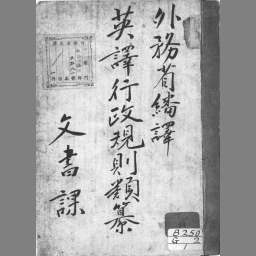 外務省繙譯
英譯行政規則類纂
文書課
B250
G 2
1